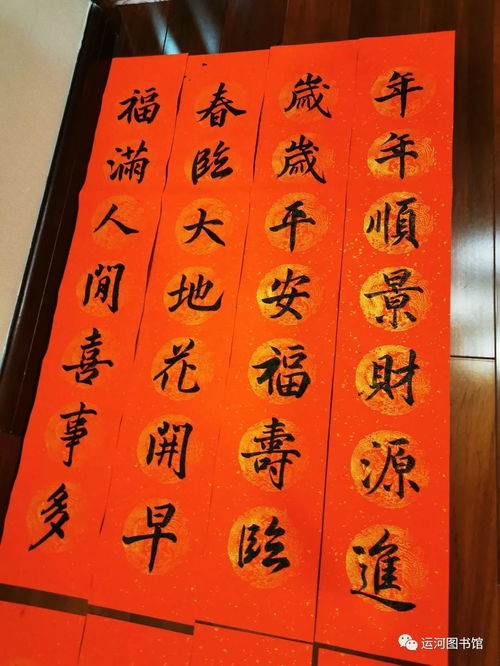 年年順景財源進
歲歲平安福壽臨
春臨大地花開早
福滿人間喜事多
运河图书馆